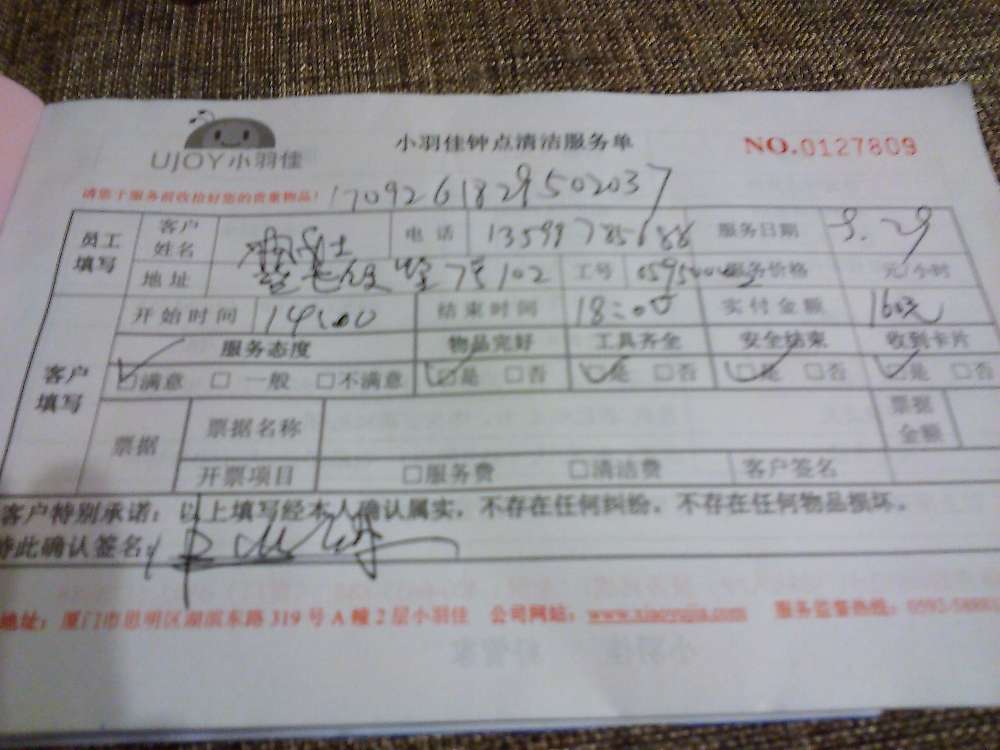 UJOY小羽佳
小羽佳钟点清洁服务单
NO.0127809
请您于服务前收拾好您的贵重物品!
1709261829502037
员工填写 客户姓名 电话 服务日期 9.29
地址 102 工号 服务价格 元/小时
开始时间 14:00 结束时间 18:00 实付金额 160元
客户填写 服务态度 物品完好 工具齐全 安全结束 收到卡片
☑满意 □一般 □不满意 ☑是 □否 ☑是 □否 ☑是 □否 ☑是 □否
票据 票据名称 票据金额
开票项目 □服务费 □清洁费 客户签名
客户特别承诺:以上填写经本人确认属实,不存在任何纠纷,不存在任何物品损坏。
特此确认签名:
地址:厦门市思明区湖滨东路319号A幢2层小羽佳 公司网站:www.xiaoyujia.com 服务监督热线:0592-5880